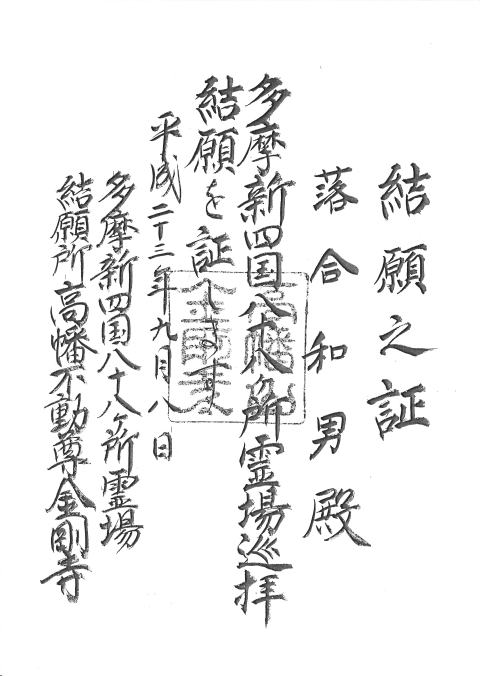 結願之証
落合和男殿
多摩新四国八十八ヶ所霊場巡拝
結願を証します
平成二十三年九月八日
多摩新四国八十八ヶ所霊場
結願所高幡不動尊金剛寺